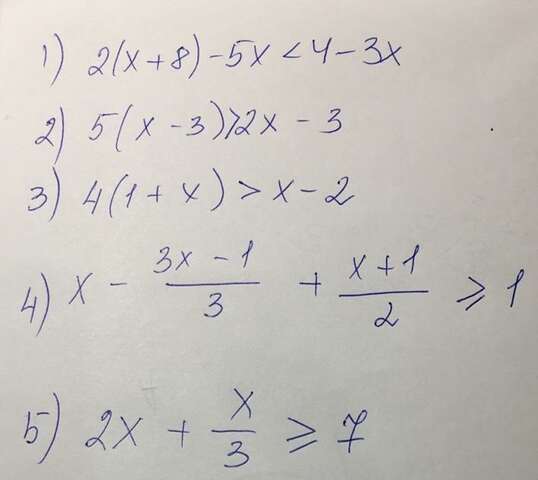 1) 2(x+8)-5x<4-3x
2) 5(x-3)>2x-3
3) 4(1+x)>x-2
4) x - \frac{3x-1}{3} + \frac{x+1}{2} ⩾ 1
5) 2x + \frac{x}{3} ⩾ 7